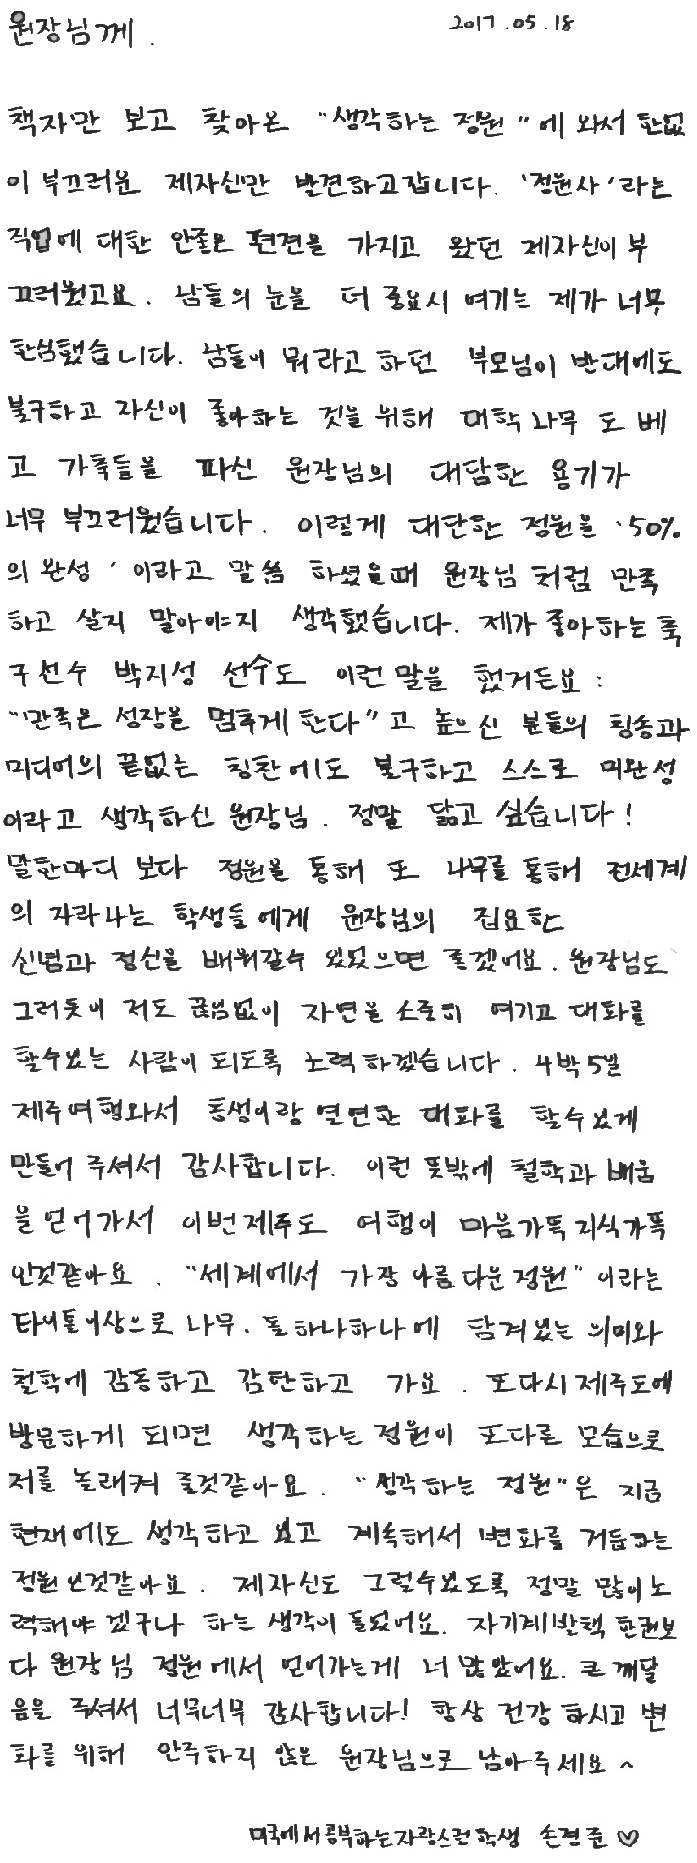 원장님께. 2017.05.18
책자만 보고 찾아온 "생각하는 정원"에 와서 한없
이 부끄러운 제자신만 발견하고갑니다. '정원사'라는
직업에 대한 안좋은 편견을 가지고 왔던 제자신이 부
끄러웠고요. 남들의 눈을 더 중요시 여기는 제가 너무
한심했습니다. 남들이 뭐라고 하던 부모님이 반대에도
불구하고 자신이 좋아하는 것을 위해 마학나무 도 베
고 가족들을 파신 원장님의 대담한 용기가
너무 부끄러웠습니다. 이렇게 대단한 정원을 '50%
의 완성' 이라고 말씀 하셨을때 원장님 처럼 만족
하고 살지 말아야지 생각했습니다. 제가 좋아하는 축
구선수 박지성 선수도 이런 말을 했거든요:
"만족은 성장을 멈추게 한다"고 높으신 분들의 칭송과
미디어의 끝없는 칭찬에도 불구하고 스스로 미완성
이라고 생각하신 원장님. 정말 닮고 싶습니다!
말한마디 보다 정원을 통해 또 나무를 통해 전세계
의 자라나는 학생들에게 원장님의 집요한
신념과 정신을 배워갈수 있었으면 좋겠어요. 원장님도
그러듯이 저도 끊임없이 자연을 소중히 여기고 대화를
할수있는 사람이 되도록 노력하겠습니다. 4박5일
제주여행와서 동생이랑 열띤한 대화를 할수있게
만들어 주셔서 감사합니다. 이런 뜻밖에 철학과 배움
을 얻어가서 이번제주도 여행이 마음가득 지식가득
인것같아요. "세계에서 가장 아름다운 정원" 이라는
타이틀이상으로 나무. 돌하나하나에 담겨있는 의미와
철학에 감동하고 감탄하고 가요. 또다시 제주도에
방문하게 되면 생각하는 정원이 또다른 모습으로
저를 놀래켜 줄것같아요. "생각하는 정원"은 지금
현재에도 생각하고 있고 계속해서 변화를 거듭하는
정원인것같아요. 제자신도 그럴수있도록 정말 많이노
력해야 겠구나 하는 생각이 들었어요. 자기계발책 한권보
다 원장님 정원에서 얻어가는게 더 많았어요. 큰 깨달
음을 주셔서 너무너무 감사합니다! 항상 건강 하시고 변
화를 위해 안주하지 않은 원장님으로 남아주세요 ^
미국에서공부하는자랑스런학생 손경준 ♡